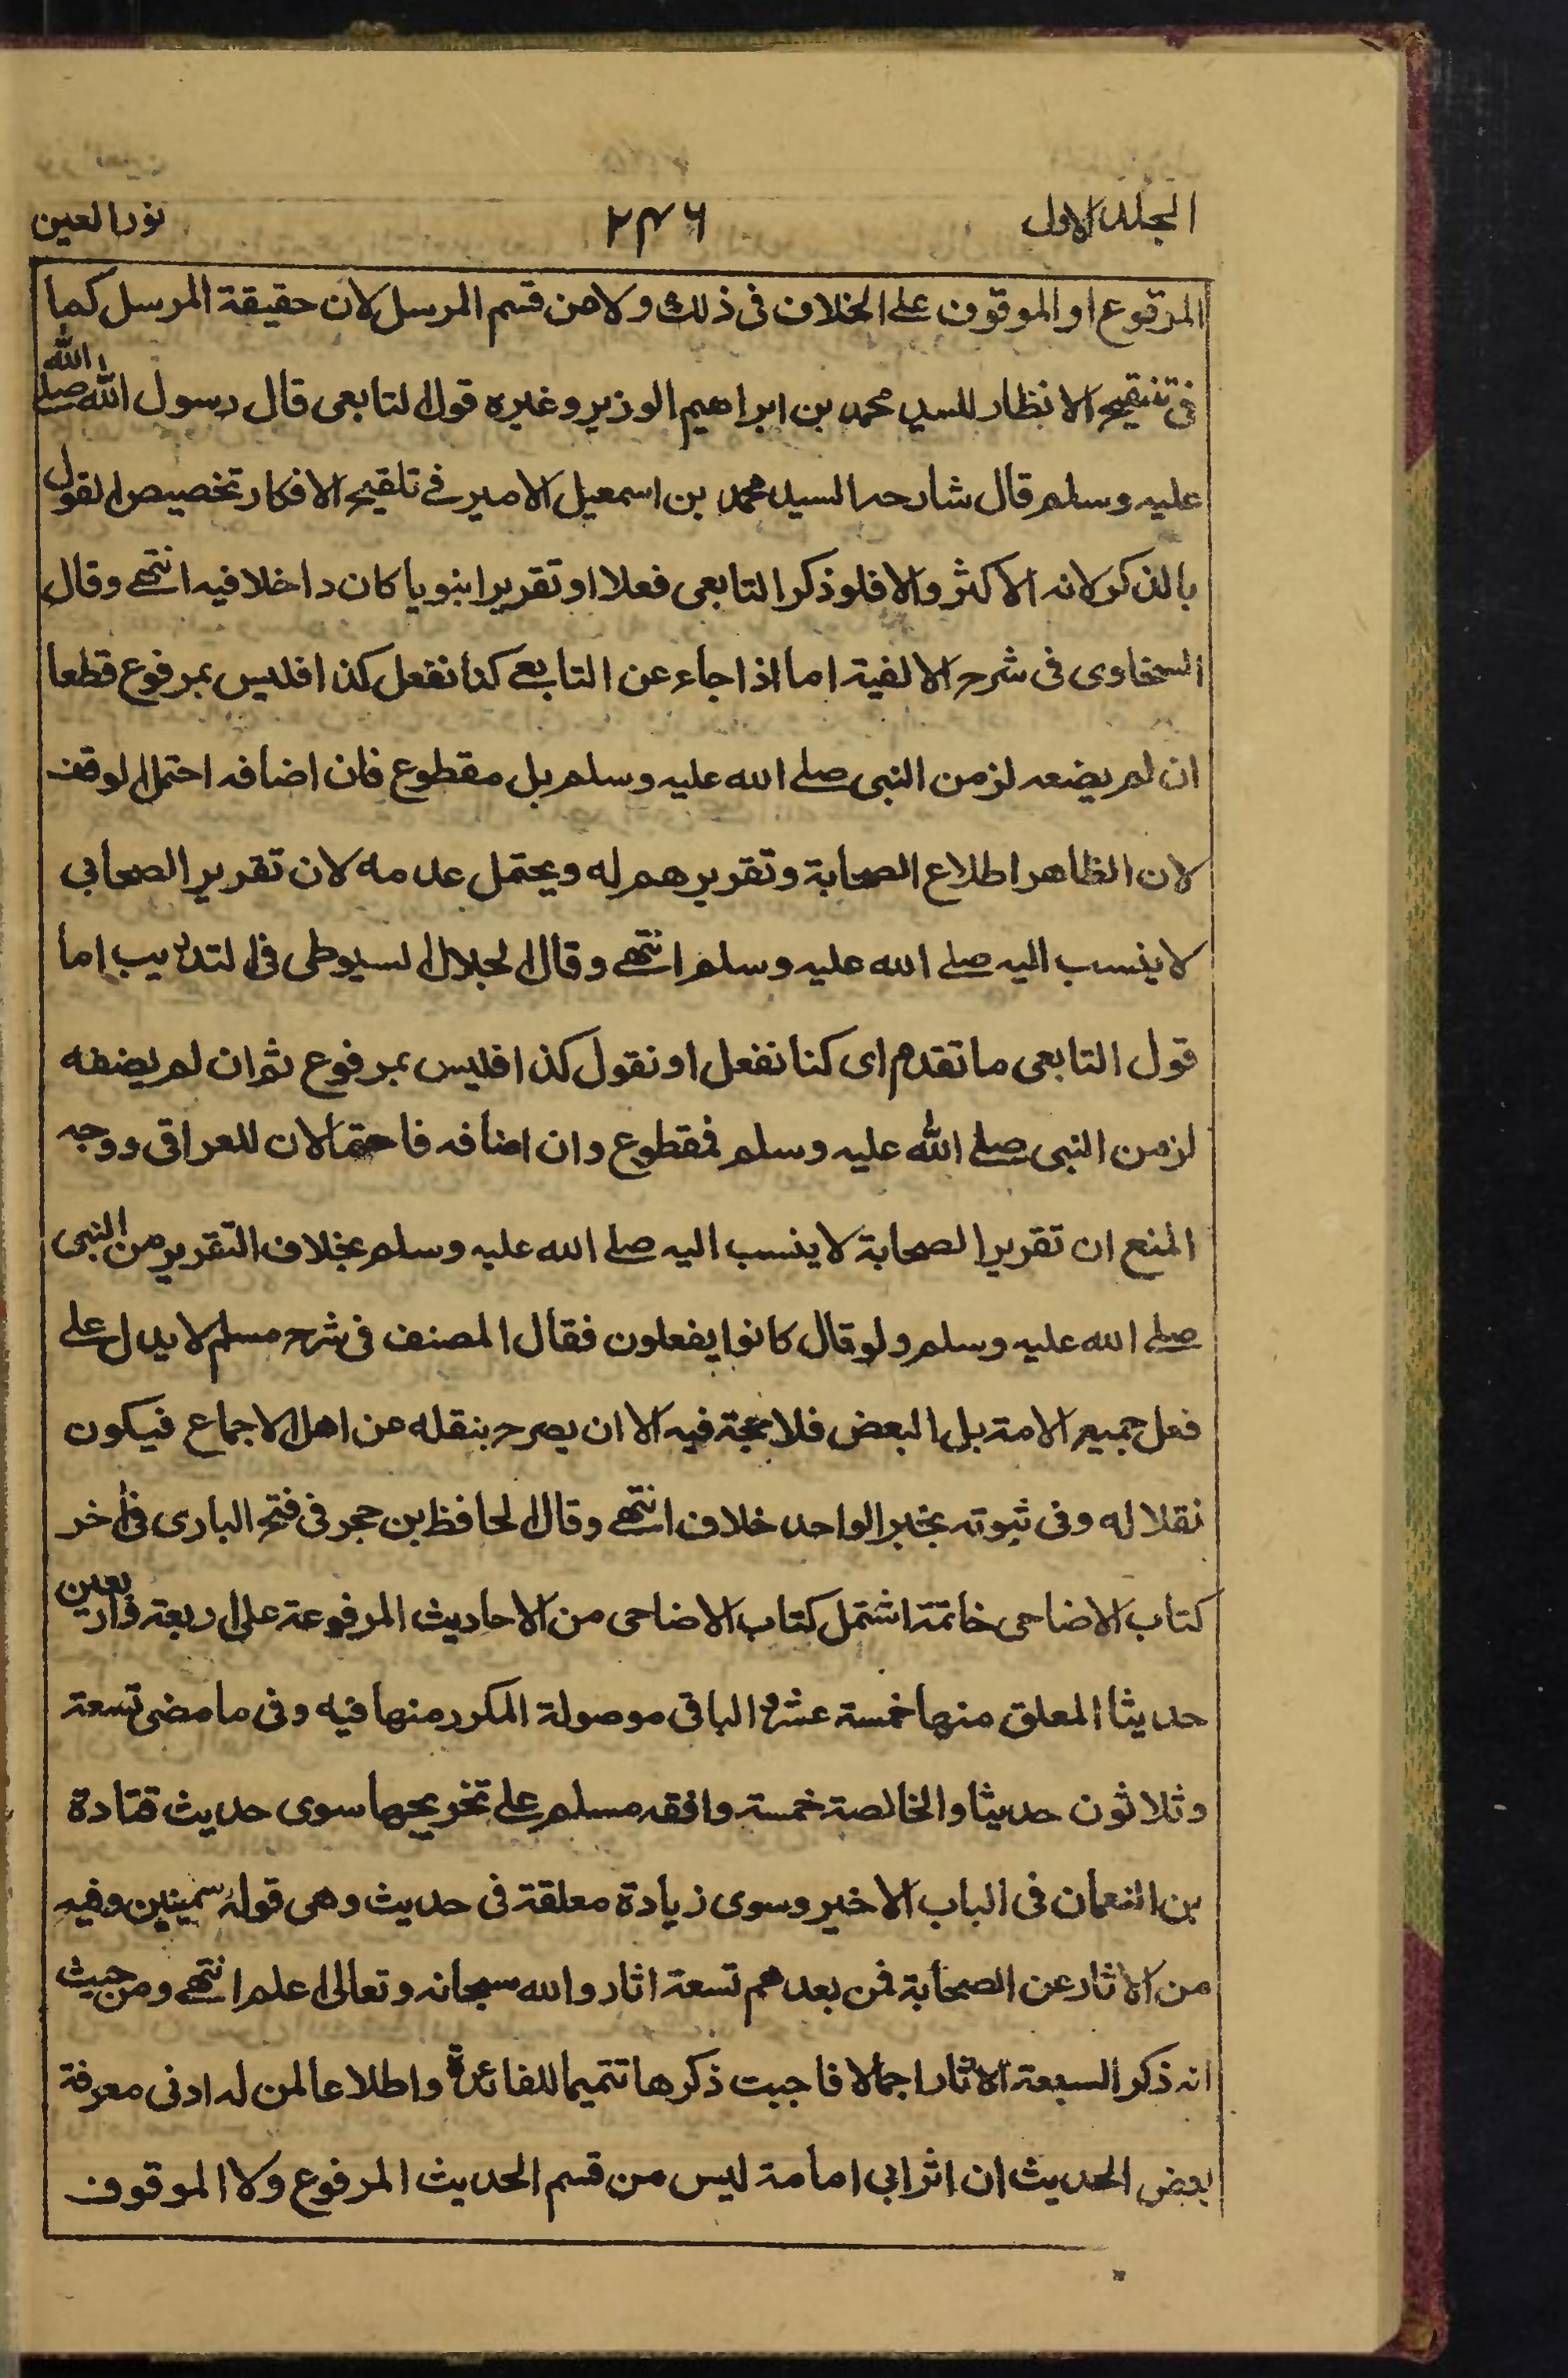 المجلد الاول ٢٤٦ نور العين
المرفوع او الموقوف على الخلاف فى ذلك ولا من قسم المرسل لان حقيقة المرسل كما
فى تنقيح الانظار للسيد محمد بن ابراهيم الوزير وغيره قول التابعى قال رسول الله صلے الله
عليه وسلم قال شارحه السيد محمد بن اسمعيل الامير فے تلقيح الافكار تخصيص القول
بالذكر لانه الاكثر والا فلو ذكر التابعى فعلا او تقريرا نبويا كان داخلا فيه انتهے وقال
السخاوى فى شرح الالفية اما اذا جاء عن التابعے كنا نفعل كذا فليس بمرفوع قطعا
ان لم يضعه لزمن النبى صلے الله عليه وسلم بل مقطوع فان اضافه احتمل الوقف
لان الظاهر اطلاع الصحابة وتقريرهم له ويحتمل عدمه لان تقرير الصحابي
لا ينسب اليه صلے الله عليه وسلم انتهے وقال الجلال السيوطى فى التدريب اما
قول التابعى ما تقدم اى كنا نفعل او نقول كذا فليس بمرفوع ثم ان لم يضفه
لزمن النبى صلے الله عليه وسلم فمقطوع وان اضافه فاحتمالان للعراقى ووجه
المنع ان تقرير الصحابة لا ينسب اليه صلے الله عليه وسلم بخلاف التقرير من النبى
صلے الله عليه وسلم ولو قال كانوا يفعلون فقال المصنف فى شرح مسلم لا يدل على
فعل جميع الامة بل البعض فلا حجة فيه الا ان يصرح بنقله عن اهل الاجماع فيكون
نقلا له وفى ثبوته بخبر الواحد خلاف انتهے وقال الحافظ بن حجر فى فتح البارى فى اخر
كتاب الاضاحى خاتمة اشتمل كتاب الاضاحى من الاحاديث المرفوعة على اربعة واربعين
حديثا المعلق منها خمسة عشر والباقى موصولة المكرر منها فيه وفى ما مضى تسعة
وثلاثون حديثا والخالصة خمسة وافقه مسلم على تخريجها سوى حديث قتادة
بن النعمان فى الباب الاخير وسوى زيادة معلقة فى حديث وهى قوله سمينين وفيه
من الاثار عن الصحابة فمن بعدهم تسعة اثار والله سبحانه وتعالى اعلم انتهے ومن حيث
انه ذكر السبعة الاثار اجمالا فاجبت ذكرها تتميما للفائدة واطلاعا لمن له ادنى معرفة
بعض الحديث ان اثر ابي امامة ليس من قسم الحديث المرفوع ولا الموقوف